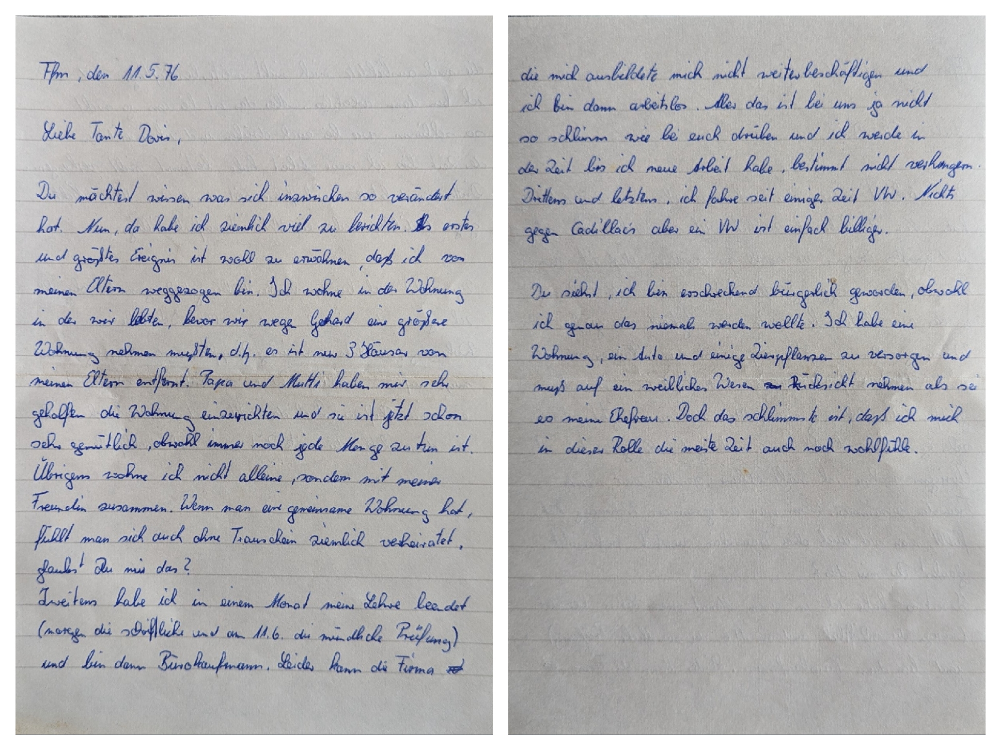 Ffm, den 11.5.76
Liebe Tante Doris,
Du möchtest wissen was sich inzwischen so verändert
hat. Nun, da habe ich ziemlich viel zu berichten. Als erstes
und größtes Ereignis ist wohl zu erwähnen, daß ich von
meinen Eltern weggezogen bin. Ich wohne in der Wohnung
in der wir lebten, bevor wir wegen Gerhard eine größere
Wohnung nehmen mußten, d.h. es ist nur 3 Häuser von
meinen Eltern entfernt. Papa und Mutti haben mir sehr
geholfen die Wohnung einzurichten und sie ist jetzt schon
sehr gemütlich, obwohl immer noch jede Menge zu tun ist.
Übrigens wohne ich nicht alleine, sondern mit meiner
Freundin zusammen. Wenn man eine gemeinsame Wohnung hat,
fühlt man sich auch ohne Trauschein ziemlich verheiratet,
glaubst Du mir das?
Zweitens habe ich in einem Monat meine Lehre beendet
(morgen die schriftliche und am 11.6. die mündliche Prüfung)
und bin dann Bürokaufmann. Leider kann die Firma
die mich ausbildete mich nicht weiterbeschäftigen und
ich bin dann arbeitslos. Aber das ist bei uns ja nicht
so schlimm wie bei euch drüben und ich werde in
der Zeit bis ich neue Arbeit habe, bestimmt nicht verhungern.
Drittens und letztens, ich fahre seit einiger Zeit VW. Nichts
gegen Cadillacs aber ein VW ist einfach billiger.
Du siehst, ich bin erschreckend bürgerlich geworden, obwohl
ich genau das niemals werden wollte. Ich habe eine
Wohnung, ein Auto und einige Zierpflanzen zu versorgen und
muß auf ein weibliches Wesen Rücksicht nehmen als sei
es meine Ehefrau. Doch das schlimmste ist, daß ich mich
in dieser Rolle die meiste Zeit auch noch wohlfühle.